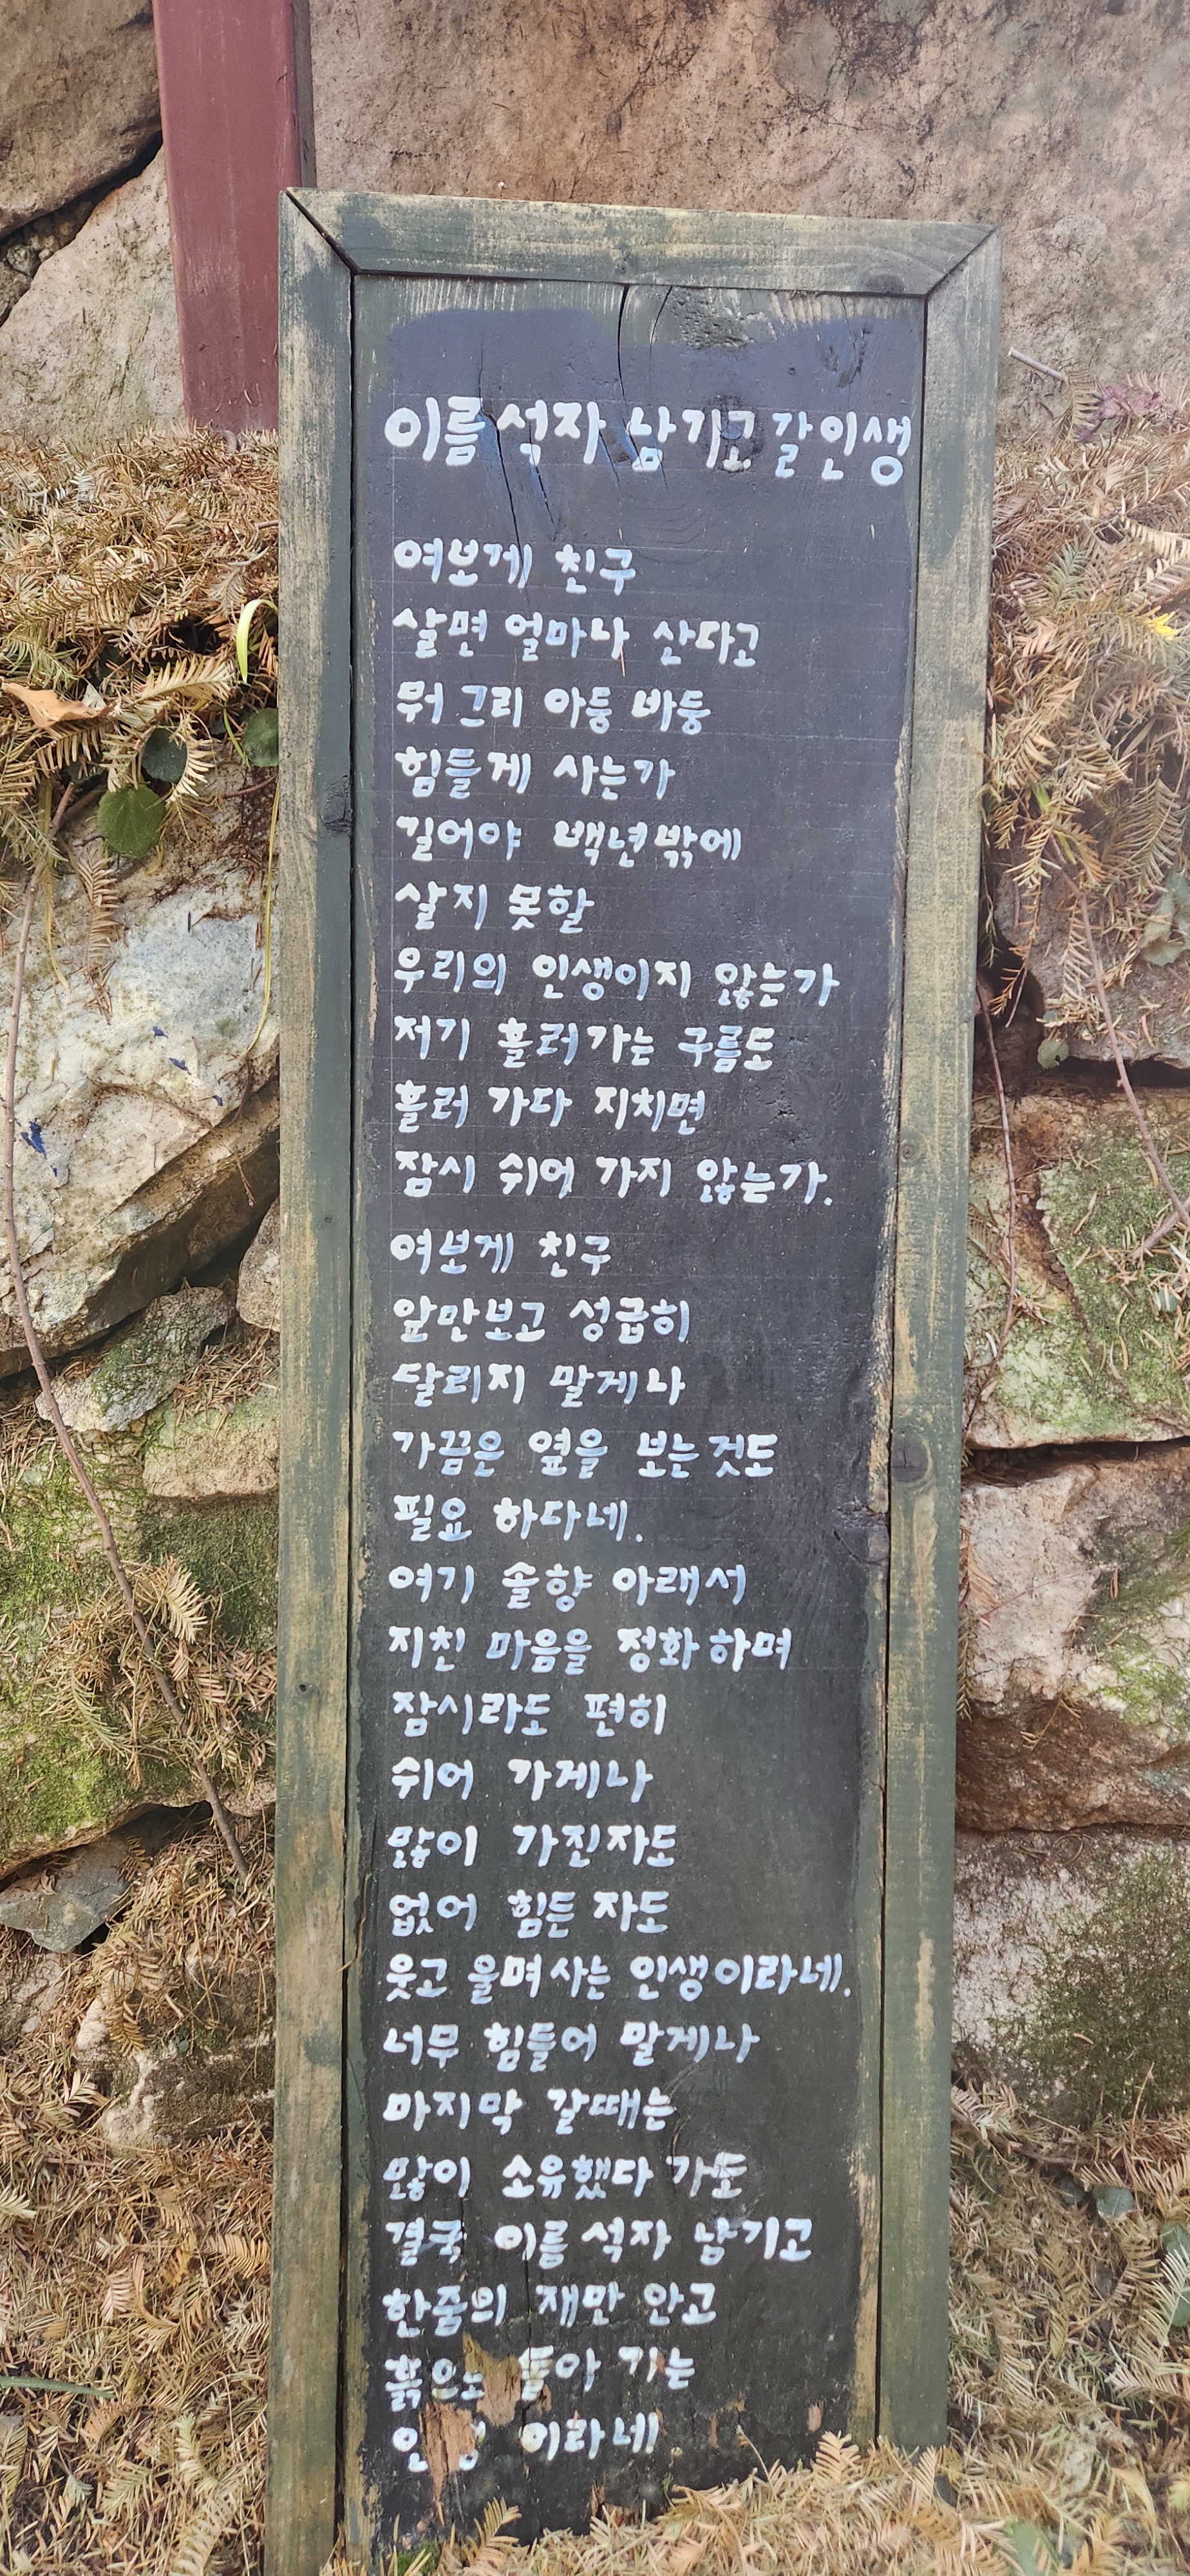 이름 석자 남기고 갈 인생
여보게 친구
살면 얼마나 산다고
뭐 그리 아둥 바둥
힘들게 사는가
길어야 백년밖에
살지 못할
우리의 인생이지 않는가
저기 흘러가는 구름도
흘러 가다 지치면
잠시 쉬어 가지 않는가.
여보게 친구
앞만보고 성급히
달리지 말게나
가끔은 옆을 보는것도
필요 하다네.
여기 솔향 아래서
지친 마음을 정화하며
잠시라도 편히
쉬어 가게나
많이 가진자도
없어 힘든 자도
웃고 울며사는 인생이라네.
너무 힘들어 말게나
마지막 갈때는
많이 소유했다 가도
결국 이름 석자 남기고
한줌의 재만 안고
흙으로 돌아 가는
인생 이라네